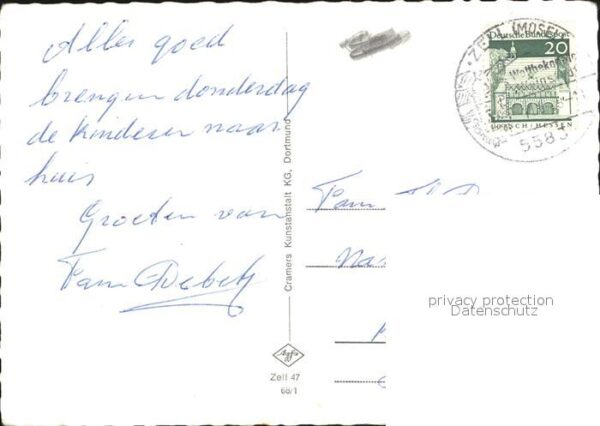 Alles goed
brengen donderdag
de kinderen naar
huis
Groeten van
Fam Debets
Fam
Cramers Kunstanstalt KG, Dortmund
Agfa
Zell 47
68/1
ZELL (MOSEL)
Deutsche Bundespost
20
LORSCH/HESSEN
5583
privacy protection
Datenschutz